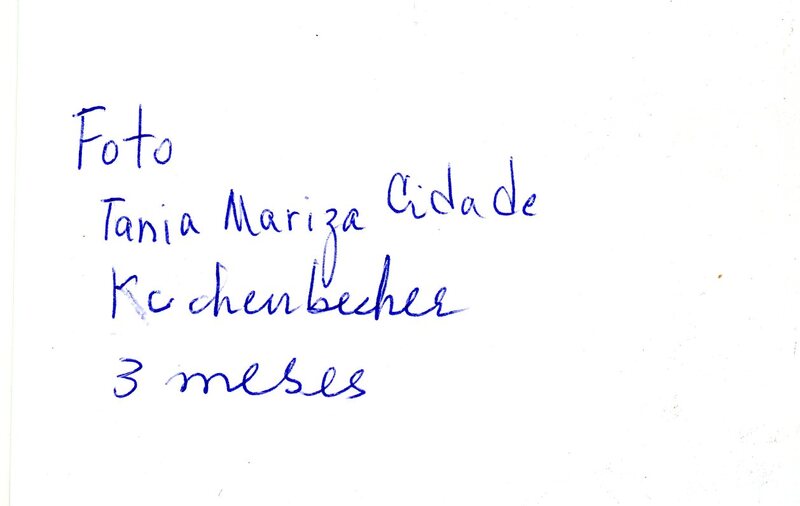 Foto
Tania Mariza Cidade
Kuchenbecher
3 meses